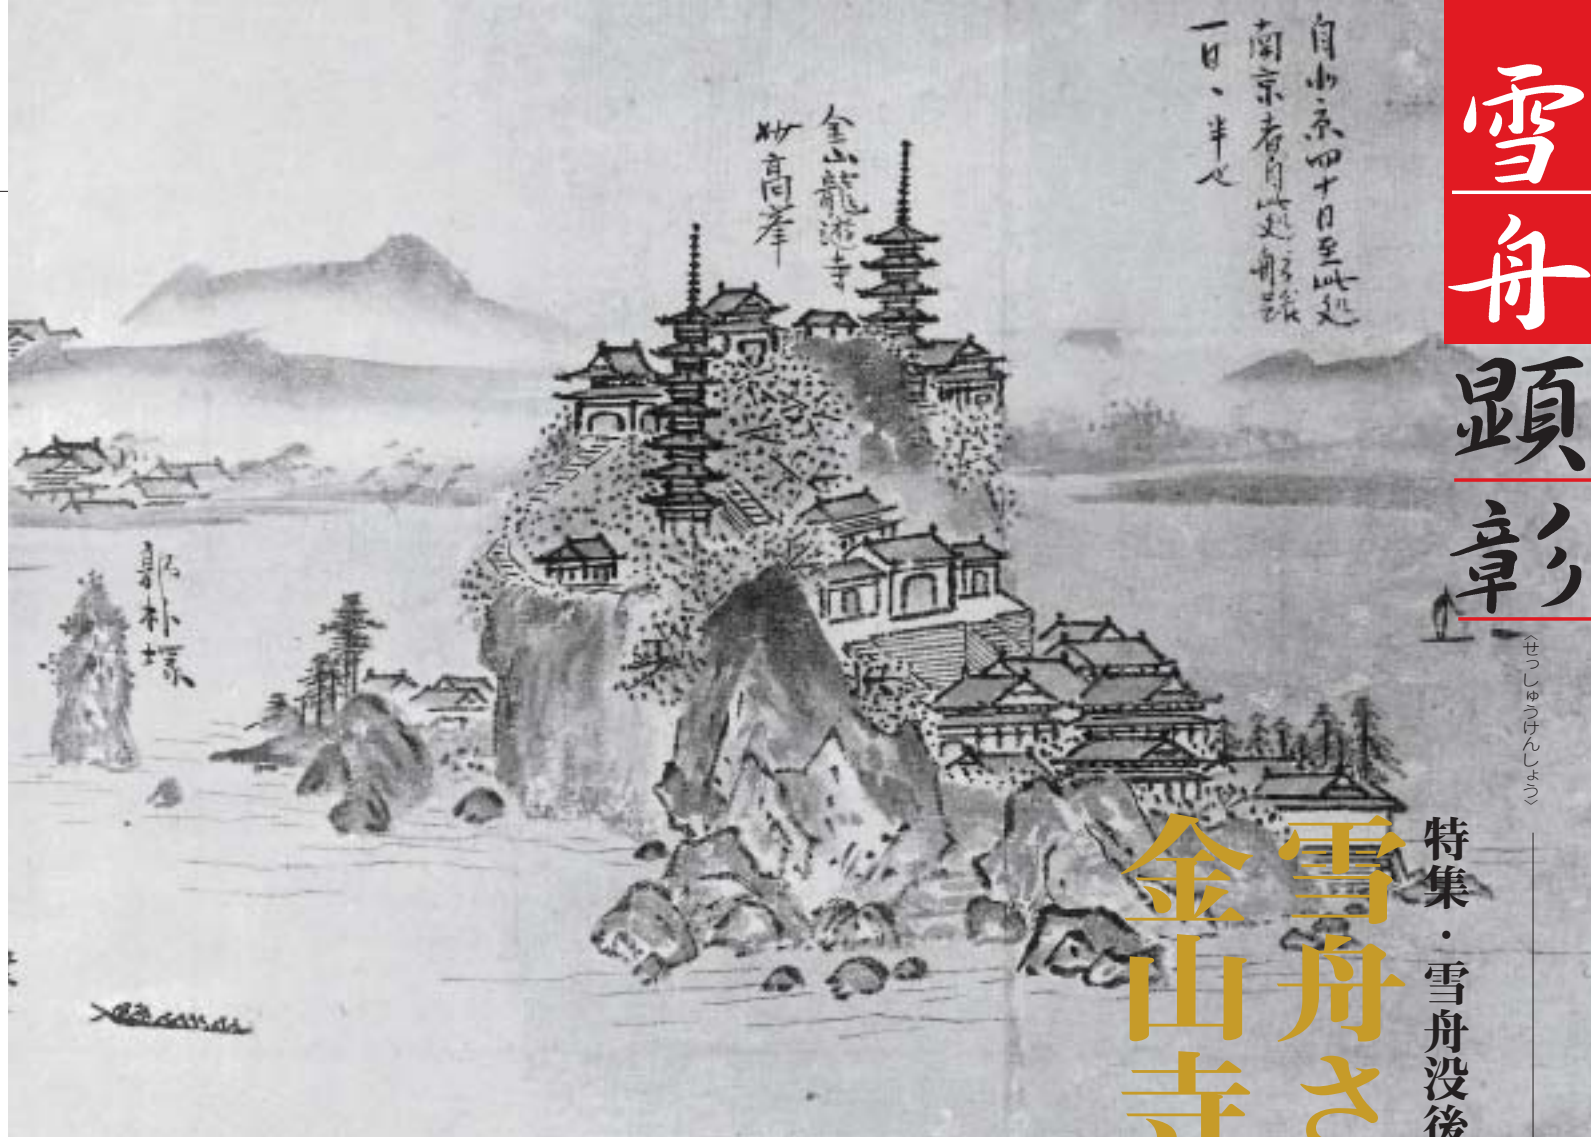 雪舟顕彰
〈せっしゅうけんしょう〉
特集・雪舟没後
雪舟さ
金山寺
自北京四十日至此処
南京者自此処
一日、半也
金山龍遊寺
妙高峯
郭朴墓